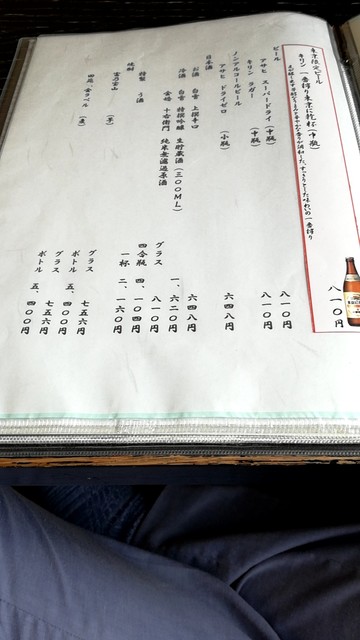 東京限定ビール
キリン 一番搾り東京に乾杯(中瓶)
八一〇円
ビール
アサヒ スーパードライ(中瓶) 八一〇円
キリン ラガー (中瓶) 八一〇円
ノンアルコールビール
アサヒ ドライゼロ (小瓶) 六四八円
日本酒
お酒 白雪 上撰辛口 六四八円
冷酒 白雪 特撰吟醸 生貯蔵酒(三〇〇ML) 一、六二〇円
金婚 十右衛門 純米無濾過原酒 グラス 八一〇円
四合瓶 四、一〇四円
特製 う酒 一杯 二、一六〇円
焼酎
富乃宝山 (芋) グラス 七五六円
ボトル 五、四〇〇円
田苑 金ラベル (麦) グラス 七五六円
ボトル 五、四〇〇円